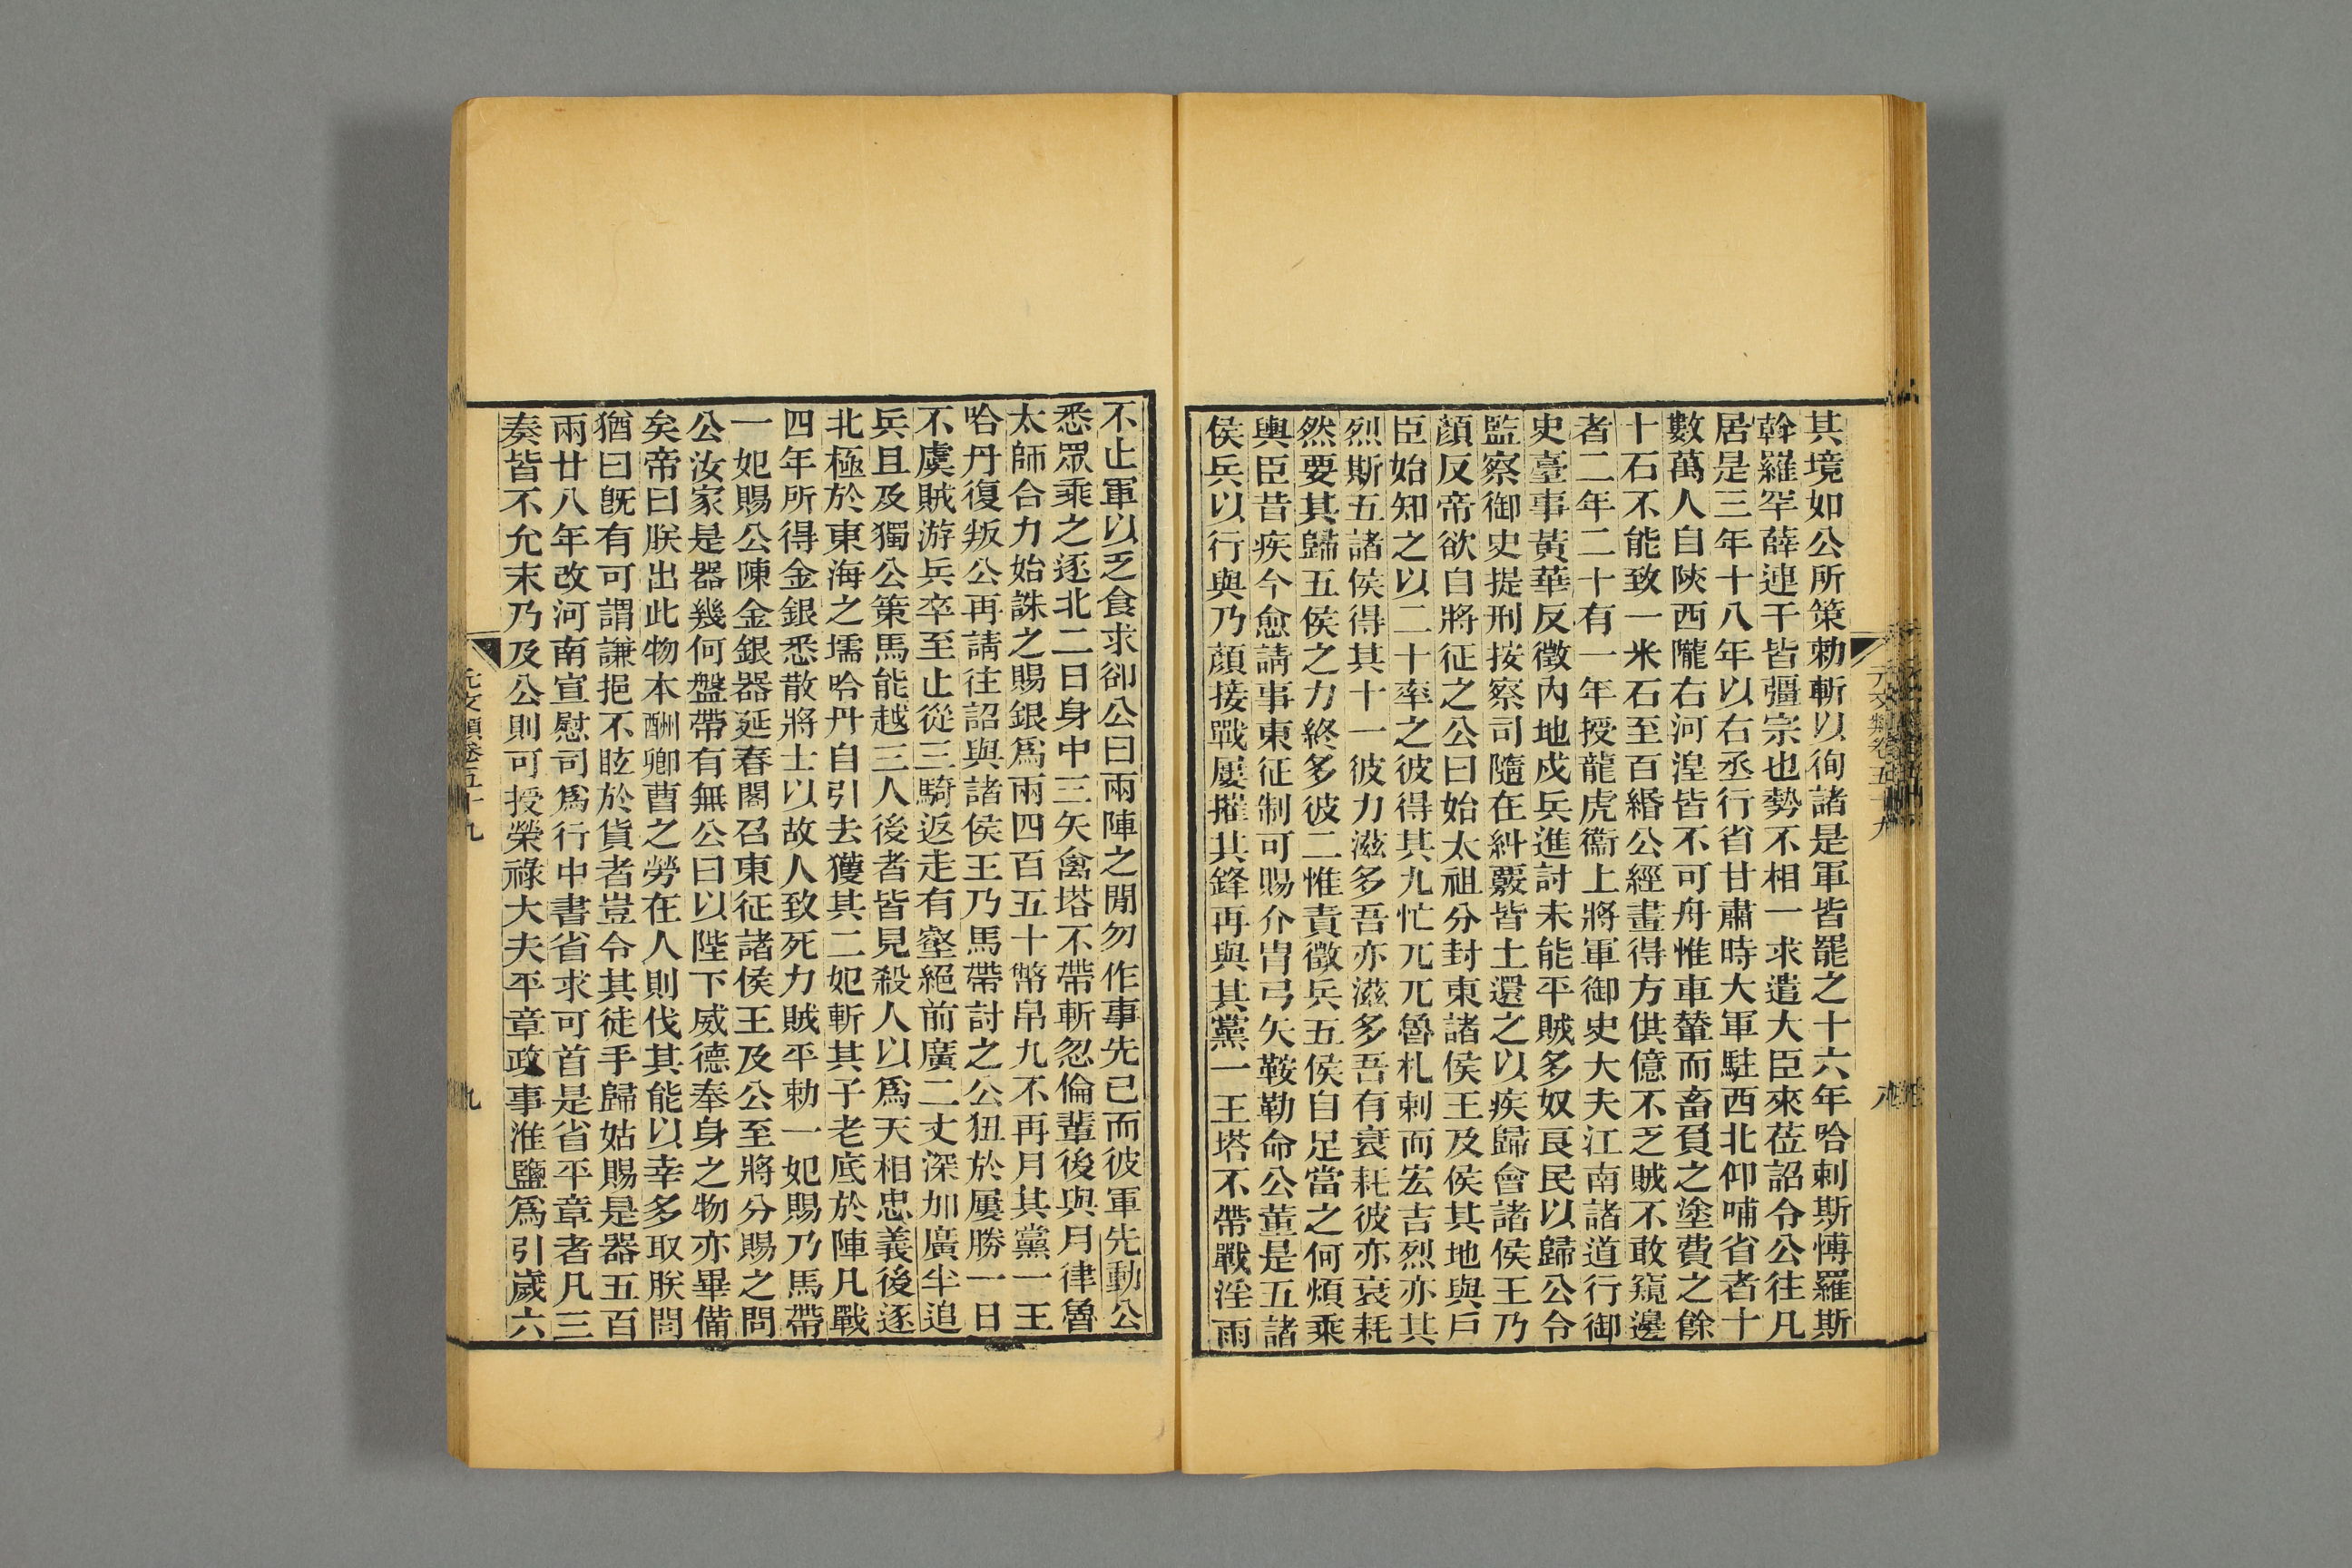 其境如公所策勅斬以徇諸是軍皆罷之十六年哈剌斯愽羅斯
斡羅罕薛連干皆彊宗也勢不相一求遣大臣來莅詔令公往凡
居是三年十八年以右丞行省甘肅時大軍駐西北仰哺省者十
數萬人自陜西隴右河湟皆不可舟惟車輦而畜負之塗費之餘
十石不能致一米石至百緡公經畫得方供億不乏賊不敢窺邊
者二年二十有一年授龍虎衞上將軍御史大夫江南諸道行御
史臺事黃華反徵內地戍兵進討未能平賊多奴良民以歸公令
監察御史提刑按察司隨在糾覈皆土還之以疾歸會諸侯王乃
顏反帝欲自將征之公曰始太祖分封東諸侯王及侯其地與戶
臣始知之以二十率之彼得其九忙兀兀魯札剌而宏吉烈亦其
烈斯五諸侯得其十一彼力滋多吾亦滋多吾有衰耗彼亦衰耗
然要其歸五侯之力終多彼二惟責徵兵五侯自足當之何煩乘
輿臣昔疾今愈請事東征制可賜介胄弓矢鞍勒命公董是五諸
侯兵以行與乃顏接戰屢摧其鋒再與其黨一王塔不帶戰淫雨
元文類卷五十九
八
不止軍以乏食求卻公曰兩陣之閒勿作事先已而彼軍先動公
悉眾乘之逐北二日身中三矢禽塔不帶斬忽倫輩後與月律魯
太師合力始誅之賜銀爲兩四百五十幣帛九不再月其黨一王
哈丹復叛公再請往詔與諸侯王乃馬帶討之公狃於屢勝一日
不虞賊游兵卒至止從三騎返走有壑絕前廣二丈深加廣半追
兵且及獨公策馬能越三人後者皆見殺人以爲天相忠義後逐
北極於東海之壖哈丹自引去獲其二妃斬其子老底於陣凡戰
四年所得金銀悉散將士以故人致死力賊平勅一妃賜乃馬帶
一妃賜公陳金銀器延春閣召東征諸侯王及公至將分賜之問
公汝家是器幾何盤帶有無公曰以陛下威德奉身之物亦畢備
矣帝曰朕出此物本酬卿曹之勞在人則伐其能以幸多取朕問
猶曰旣有可謂謙挹不眩於貨者豈令其徒手歸姑賜是器五百
兩廿八年改河南宣慰司爲行中書省求可首是省平章者凡三
奏皆不允末乃及公則可授榮祿大夫平章政事淮鹽爲引歲六
元文類卷五十九
九